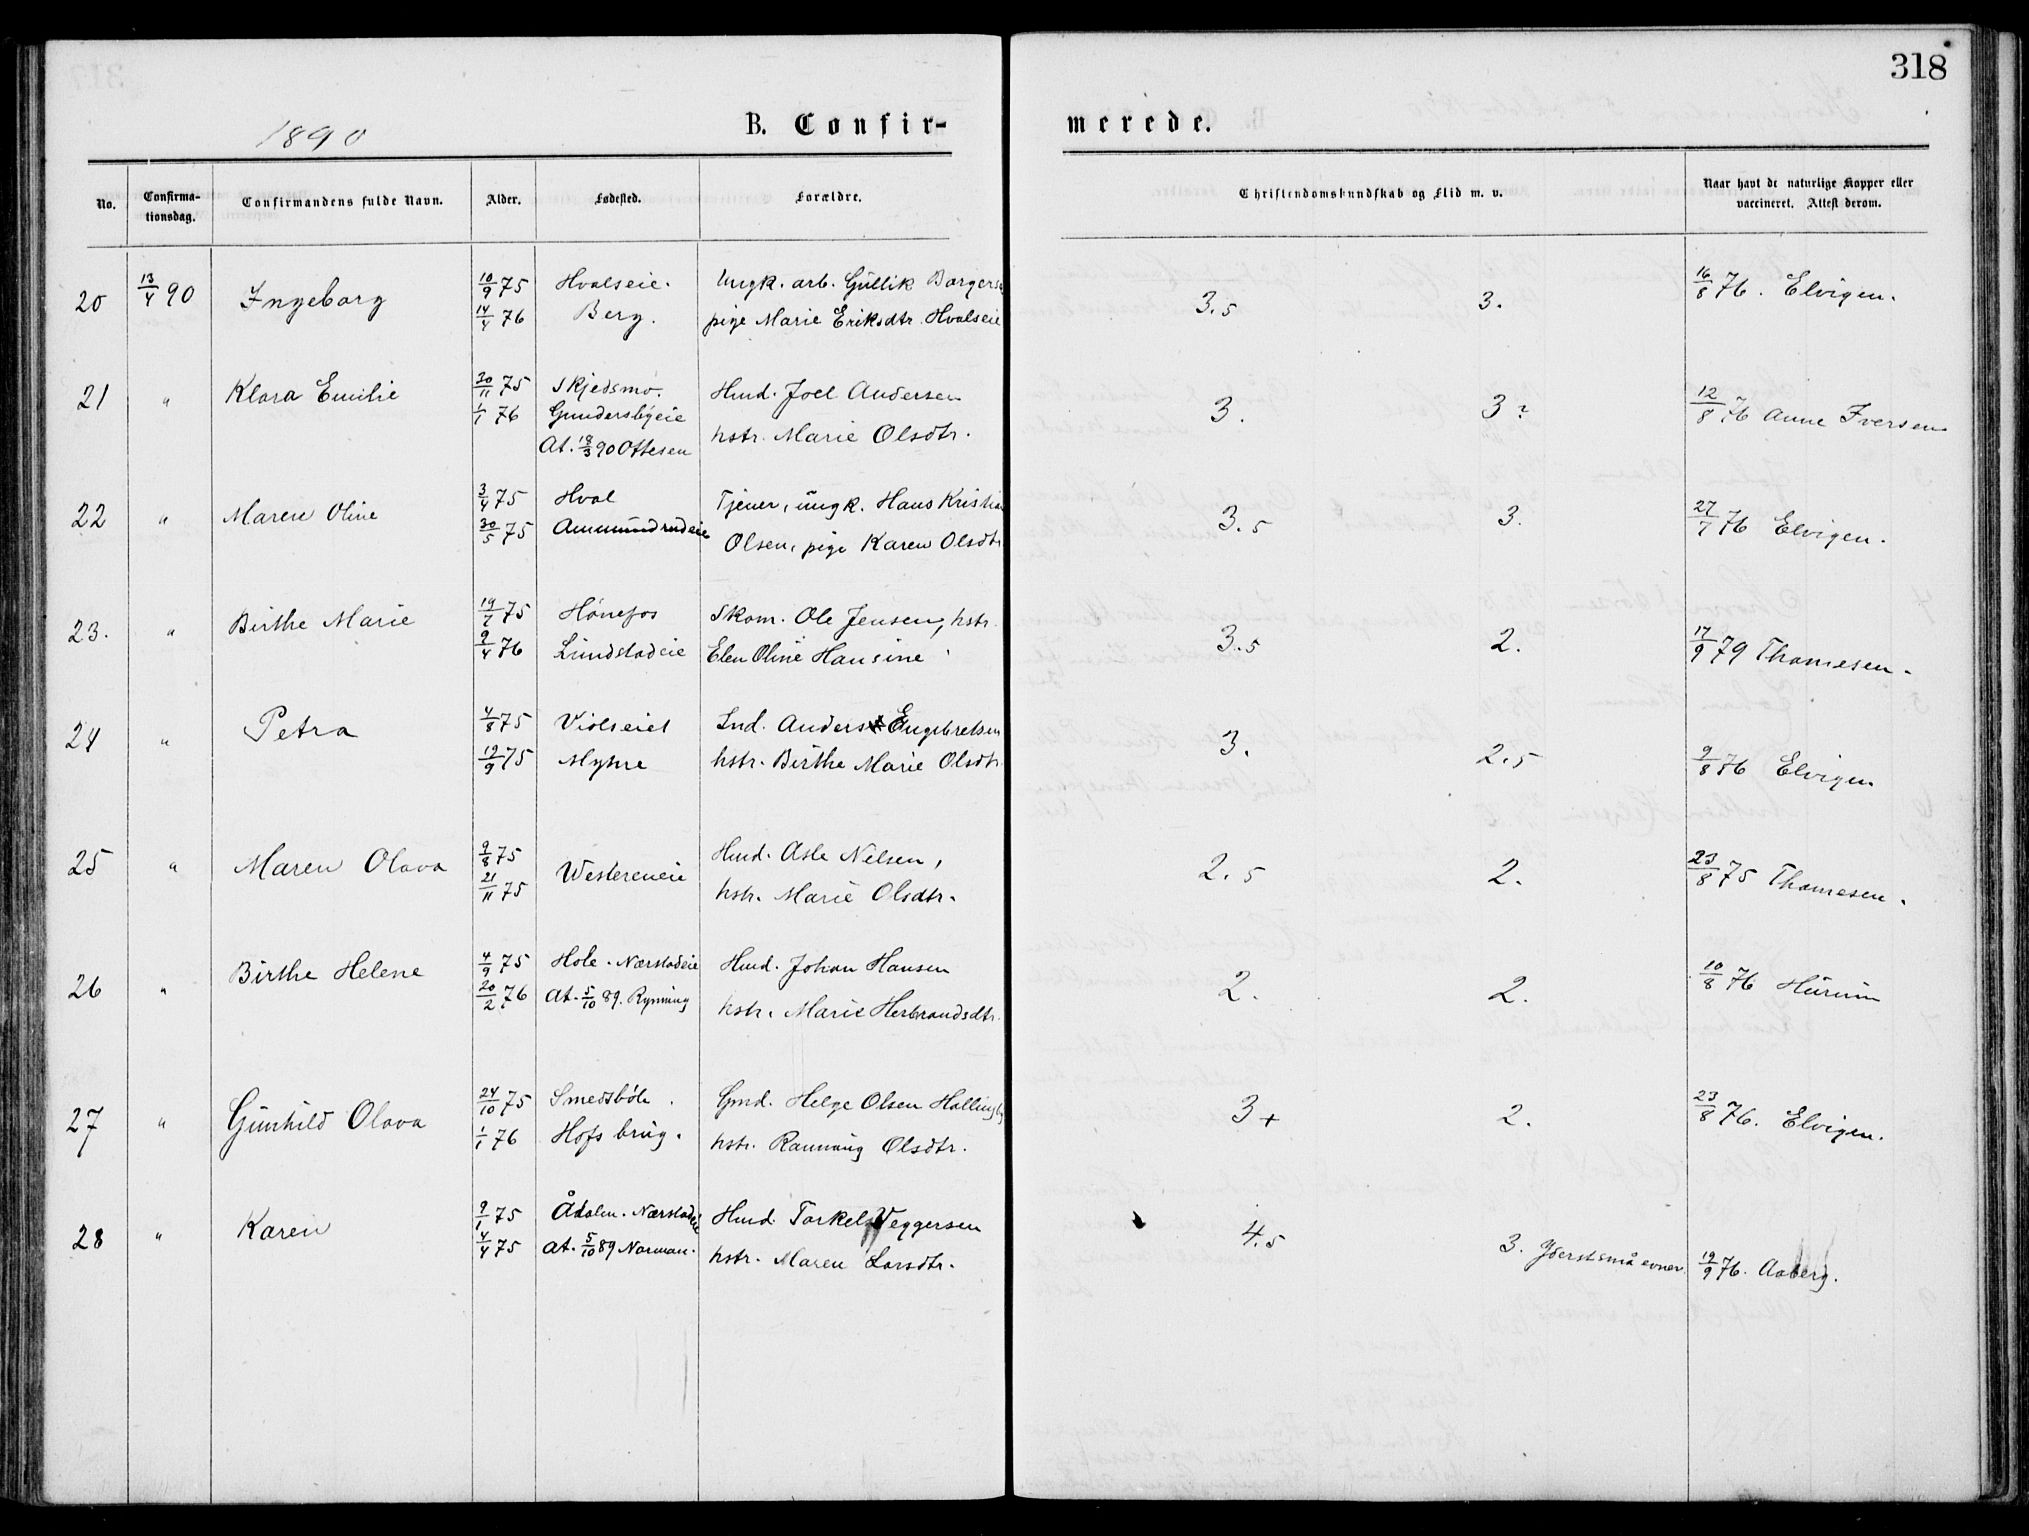 318
1890
B. Confirmerede.
No.
Confirmationsdag.
Confirmandens fulde Navn.
Alder.
Fødested.
Forældre.
Christendomskundskab og Flid m. v.
Naar havt de naturlige Kopper eller
vaccineret. Attest derom.
20 13/4 90 Ingeborg 10/9 75 Hvalseie. Ungk. arb. Gullik Borgers 3.5 3. 16/8 76. Elvigen.
14/4 76 Berg. pige Marie Eriksdtr. Hvalseie
21 " Klara Emilie 30/11 75 Skjedsmo. Hmd. Joel Andersen 3. 3? 12/8 76 Anne Iversen
1/1 76 Gundersbyeie hstr. Marie Olsdtr.
At. 18/3 90 Ottesen
22 " Maren Oline 3/4 75 Hval Tjener, ungk. Hans Kristian 3.5 3. 27/7 76 Elvigen.
30/5 75 Ammundrudeie Olsen, pige Karen Olsdtr
23. " Birthe Marie 19/7 75 Hønefos Skom. Ole Jensen, hstr. 3.5 2. 17/9 79 Thomesen.
9/4 76 Lundstadeie Elen Oline Hansine
24 " Petra 4/8 75 Violseiet Ind. Anders Engebretsen 3. 2.5 9/8 76 Elvigen
19/9 75 Myhre hstr. Birthe Marie Olsdtr
25 " Maren Olava 9/8 75 Westereneie Hmd. Asle Nelsen, 2.5 2. 23/8 75 Thomesen.
21/11 75 hstr. Marie Olsdtr.
26 " Birthe Helene 4/9 75 Hole. Nærstadeie Hmd. Johan Hansen 2. 2. 10/8 76 Hurum
20/2 76 At. 5/10 89. Rynning hstr. Marie Herbrandsdtr.
27 " Gunhild Olava 24/10 75 Smedsbøle. Gmd. Helge Olsen Hallingby 3+ 2. 23/8 76. Elvigen.
1/1 76 Hofs brug. hstr. Rannvig Olsdtr.
28 " Karen 9/1 75 Ådalen. Nærstadeie Hmd. Torkel Veggersen 4.5 3. Yderst små evner. 19/9 76. Aaberg.
4/4 75 At. 5/10 89 Norman. hstr. Maren Larsdtr.